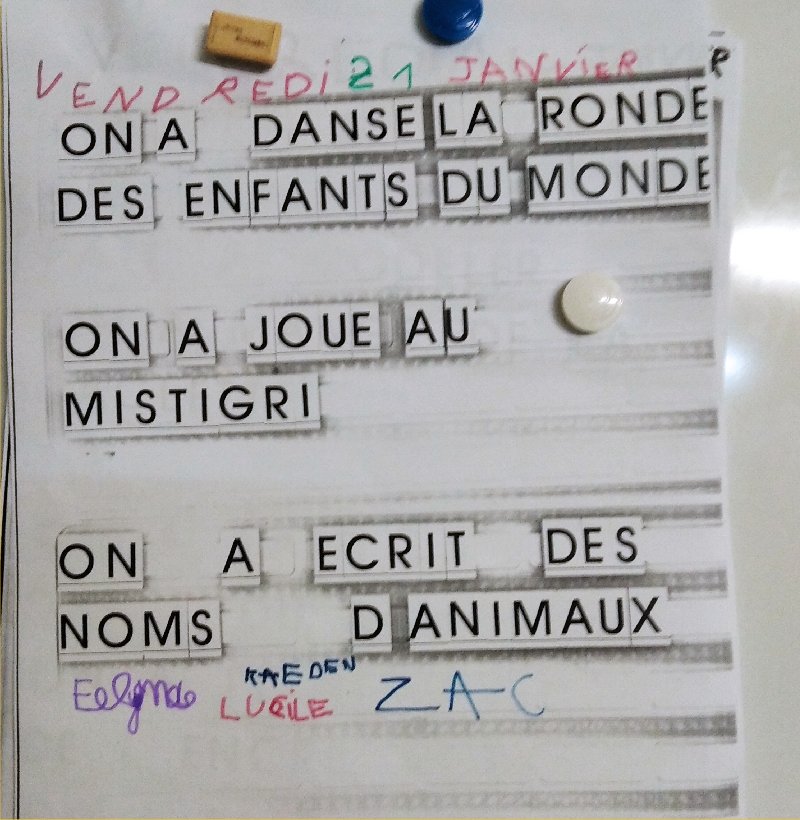 VENDREDI 21 JANVIER
ON A DANSE LA RONDE
DES ENFANTS DU MONDE
ON A JOUE AU
MISTIGRI
ON A ECRIT DES
NOMS D ANIMAUX
KAEDEN
LUCILE ZAC